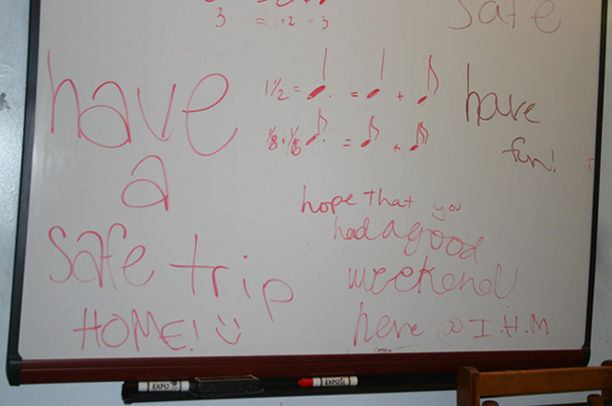 3 = 1+2 = 3
safe
have
a
safe trip
HOME!
1 1/2 = . = +
1/8 + 1/16 . = +
have
fun!
hope that you
had a good
weekend
here @ I.H.M
EXPO
EXPO